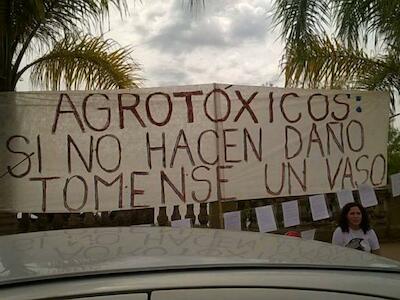 AGROTÓXICOS:
SI NO HACEN DAÑO
TOMENSE UN VASO